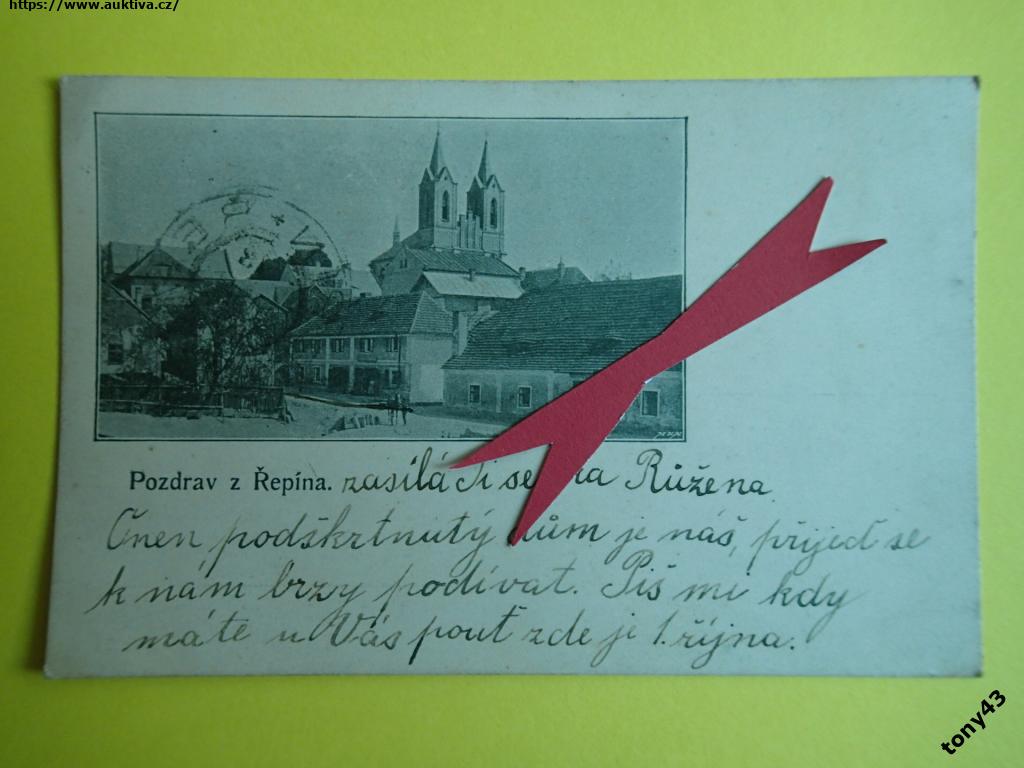 https://www.auktiva.cz/
Pozdrav z Řepína. zasílá Ti Růžena
Onen podškrtnutý dům je náš, přijeď se
k nám brzy podívat. Piš mi kdy
máte u Vás pouť zde je 1. října.
tony43